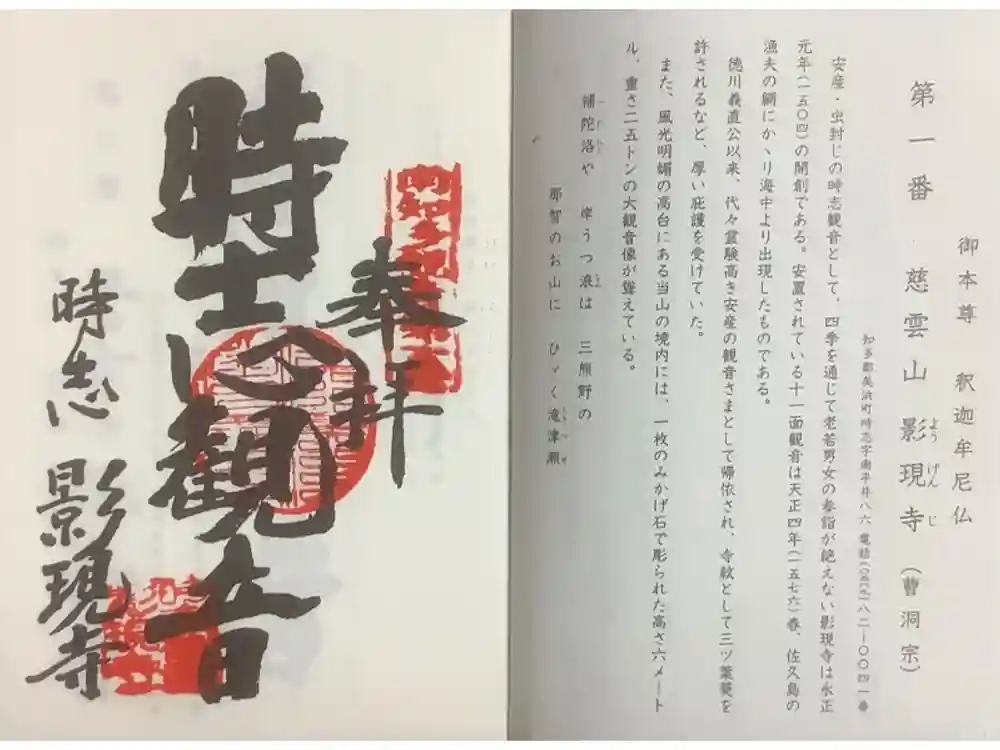 御本尊 釈迦牟尼仏
第一番 慈雲山 影現寺(曹洞宗)
ようげんじ
知多郡美浜町時志字南平井八六 電話(〇五六九)八二-〇〇四一番
安産・虫封じの時志観音として、四季を通じて老若男女の参詣が絶えない影現寺は永正
元年(一五〇四)の開創である。安置されている十一面観音は天正四年(一五七六)春、佐久島の
漁夫の網にかゝり海中より出現したものである。
徳川義直公以来、代々霊験高き安産の観音さまとして帰依され、寺紋として三ツ葉葵を
許されるなど、厚い庇護を受けていた。
また、風光明媚の高台にある当山の境内には、一枚のみかげ石で彫られた高さ六メート
ル、重さ二五トンの大観音像が聳えている。
補陀洛や 岸うつ浪は 三熊野の
那智のお山に ひゞく滝津瀬
奉拝
時志観音
時志 影現寺